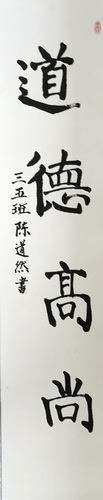 道德高尚
三五班陈道然书